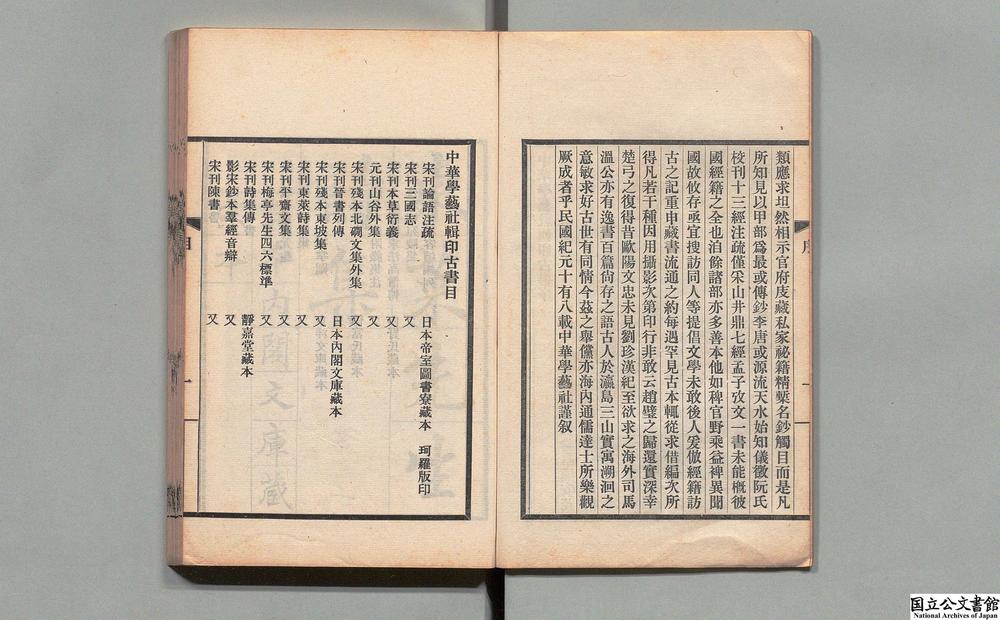 類應求坦然相示官府庋藏私家祕籍精槧名鈔觸目而是凡
所知見以甲部爲最或傳鈔李唐或源流天水始知儀徵阮氏
校刊十三經注疏僅采山井鼎七經孟子攷文一書未能概彼
國經籍之全也洎餘諸部亦多善本他如稗官野乘益裨異聞
國故攸存亟宜搜訪同人等提倡文學未敢後人爰倣經籍訪
古之記重申藏書流通之約每遇罕見古本輒從求借編次所
得凡若干種因用攝影次第印行非敢云趙璧之歸還實深幸
楚弓之復得昔歐陽文忠未見劉珍漢紀至欲求之海外司馬
溫公亦有逸書百篇尙存之語古人於瀛島三山實寓溯洄之
意敏求好古世有同情今茲之舉儻亦海內通儒達士所樂觀
厥成者乎民國紀元十有八載中華學藝社謹叙
序
一
中華學藝社輯印古書目
宋刊論語注疏 日本帝室圖書寮藏本 珂羅版印
宋刊三國志 又
宋刊本草衍義 又
元刊山谷外集 又
宋刊殘本北磵文集外集 又
宋刊晉書列傳 日本內閣文庫藏本
宋刊殘本東坡集 又
宋刊東萊詩集 又
宋刊平齋文集 又
宋刊梅亭先生四六標準 又
宋刊詩集傳 靜嘉堂藏本
影宋鈔本羣經音辯 又
宋刊陳書 又
目
一
国立公文書館
National Archives of Japan